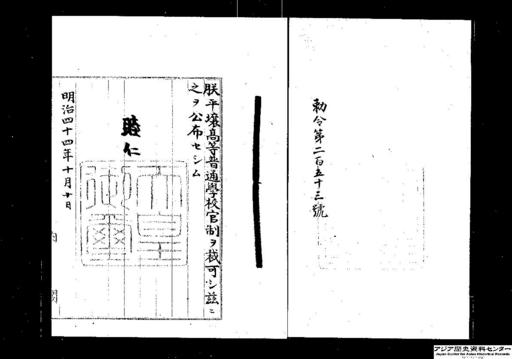 勅令第二百五十三號
朕平壌高等普通學校官制ヲ裁可シ茲ニ
之ヲ公布セシム
睦仁
天皇御璽
明治四十四年十月廿日
内閣
アジア歴史資料センター
Japan Center for Asian Historical Records